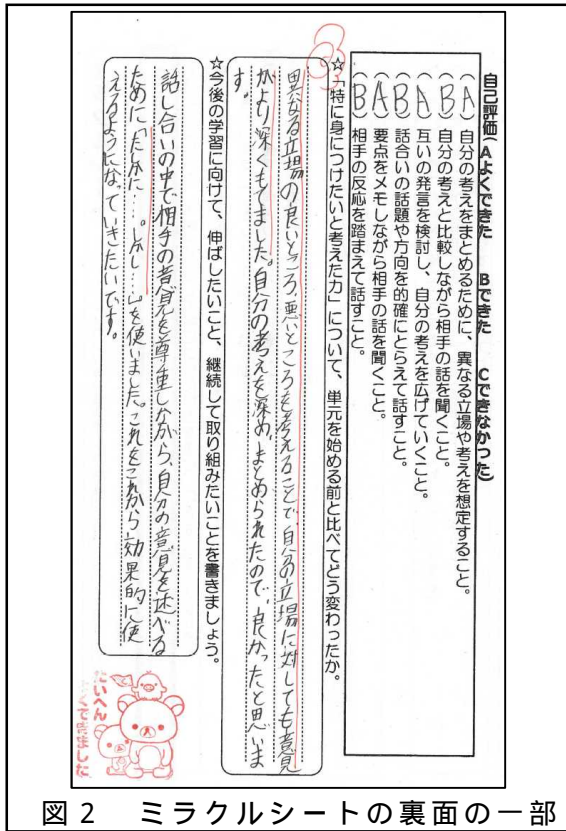 自己評価(Aよくできた　Bできた　Cできなかった)
(A)自分の考えをまとめるために、異なる立場や考えを想定すること。
(B)自分の考えと比較しながら相手の話を聞くこと。
(A)互いの発言を検討し、自分の考えを広げていくこと。
(B)話合いの話題や方向を的確にとらえて話すこと。
(A)要点をメモしながら相手の話を聞くこと。
(B)相手の反応を踏まえて話すこと。
☆「特に身につけたいと考えた力」について、単元を始める前と比べてどう変わったか。
異なる立場の良いところ、悪いところを考えることで、自分の立場に対しても意見
がより深くもてました。自分の考えを深め、まとめられたので、良かったと思いま
す。
☆今後の学習に向けて、伸ばしたいこと、継続して取り組みたいことを書きましょう。
話し合いの中で相手の意見を尊重しながら、自分の意見を述べる
ために「たしかに…。しかし…」を使いました。これをこれから効果的に使
えるようになっていきたいです。
たいへん
よくできました
図2　ミラクルシートの裏面の一部